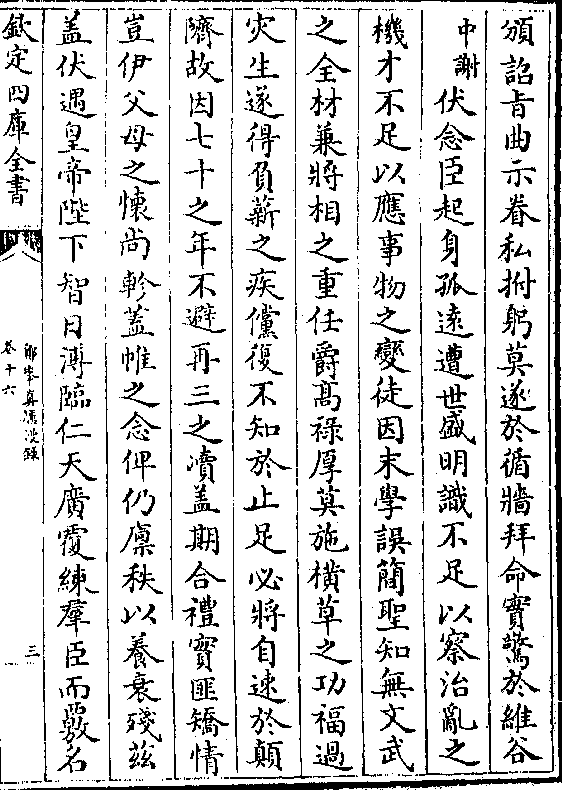 頒詔旨曲示眷私拊躬莫遂於循牆拜命實驚於維谷
中謝伏念臣起身孤逺遭世盛明識不足以察治亂之
機才不足以應事物之變徒因末學誤簡聖知無文武
之全材兼將相之重任爵髙祿厚莫施横草之功福過
灾生遂得負薪之疾儻復不知於止足必將自速於顛
隮故因七十之年不避再三之凟盖期合禮實匪矯情
豈伊父母之懐尚軫蓋帷之念俾仍廪秩以養衰殘兹
盖伏遇皇帝陛下智日溥臨仁天廣覆練羣臣而覈名
欽定四庫全書
鄮峯真隱漫錄
卷十六
三